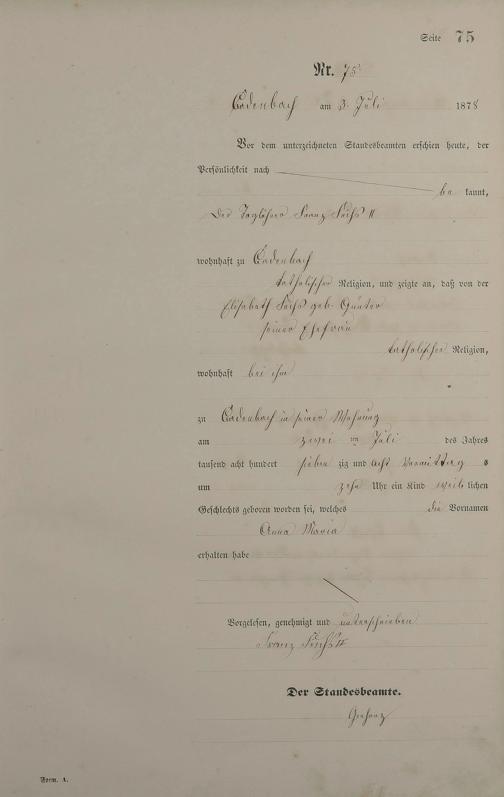 Seite 75
Nr. 75
Cadenbach am 3. Juli 1878
Vor dem unterzeichneten Standesbeamten erschien heute, der
Persönlichkeit nach
be kannt,
der Taglöhner Franz II
wohnhaft zu Cadenbach
katholischer Religion, und zeigte an, daß von der
Elisabeth geb. Günter
seiner Ehefrau
katholischer Religion,
wohnhaft bei ihm
zu Cadenbach in seiner Wohnung
am zwei ten Juli des Jahres
tausend acht hundert sieben zig und acht Vormittag s
um zehn Uhr ein Kind weib lichen
Geschlechts geboren worden sei, welches die Vornamen
Anna Maria
erhalten habe
Vorgelesen, genehmigt und unterschrieben
Franz II
Der Standesbeamte.
Form. A.